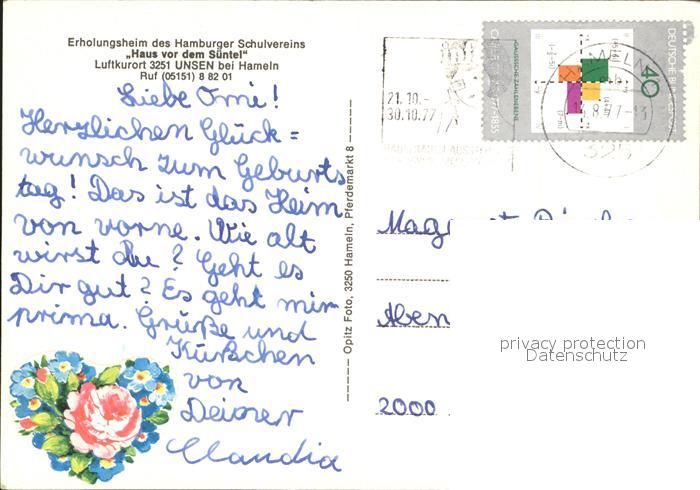 Erholungsheim des Hamburger Schulvereins
„Haus vor dem Süntel"
Luftkurort 3251 UNSEN bei Hameln
Ruf (05151) 8 82 01
Liebe Omi!
Herzlichen Glück=
wunsch zum Geburts
tag! Das ist das Heim
von vorne. Wie alt
wirst du? Geht es
Dir gut? Es geht mir
prima. Grüße und
Küßchen
von
Deiner
Claudia
Opitz Foto, 3250 Hameln, Pferdemarkt 8
21.10.-
30.10.77
DEUTSCHE BUNDESPOST
40
GAUSSISCHE ZAHLENEBENE
HAMELN
325
Mag
Aben
2000
privacy protection
Datenschutz